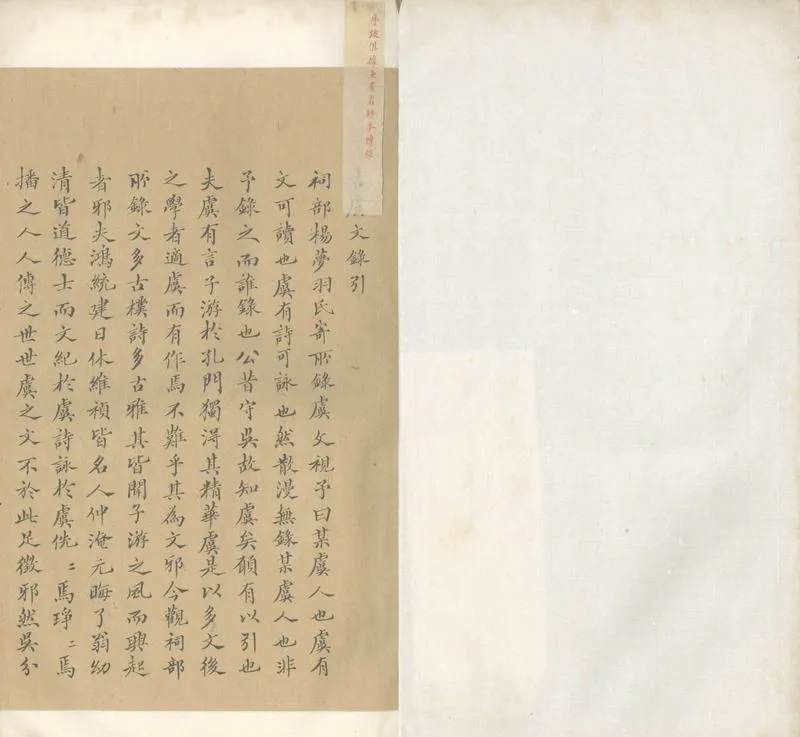 序跋俱據無者後抄本增錄
古虞文錄引
祠部楊夢羽氏寄所錄虞文視予曰某虞人也虞有
文可讀也虞有詩可詠也然散漫無錄某虞人也非
予錄之而誰錄也公昔守吳故知虞矣願有以引也
夫虞有言子游於孔門獨得其精華虞是以多文後
之學者適虞而有作焉不難乎其為文邪今觀祠部
所錄文多古樸詩多古雅其皆聞子游之風而興起
者邪夫鴻統建日休維禎皆名人仲淹元晦了翁幼
清皆道德士而文紀於虞詩詠於虞侁〻焉琤〻焉
播之人人傳之世世虞之文不於此足徵邪然吳分